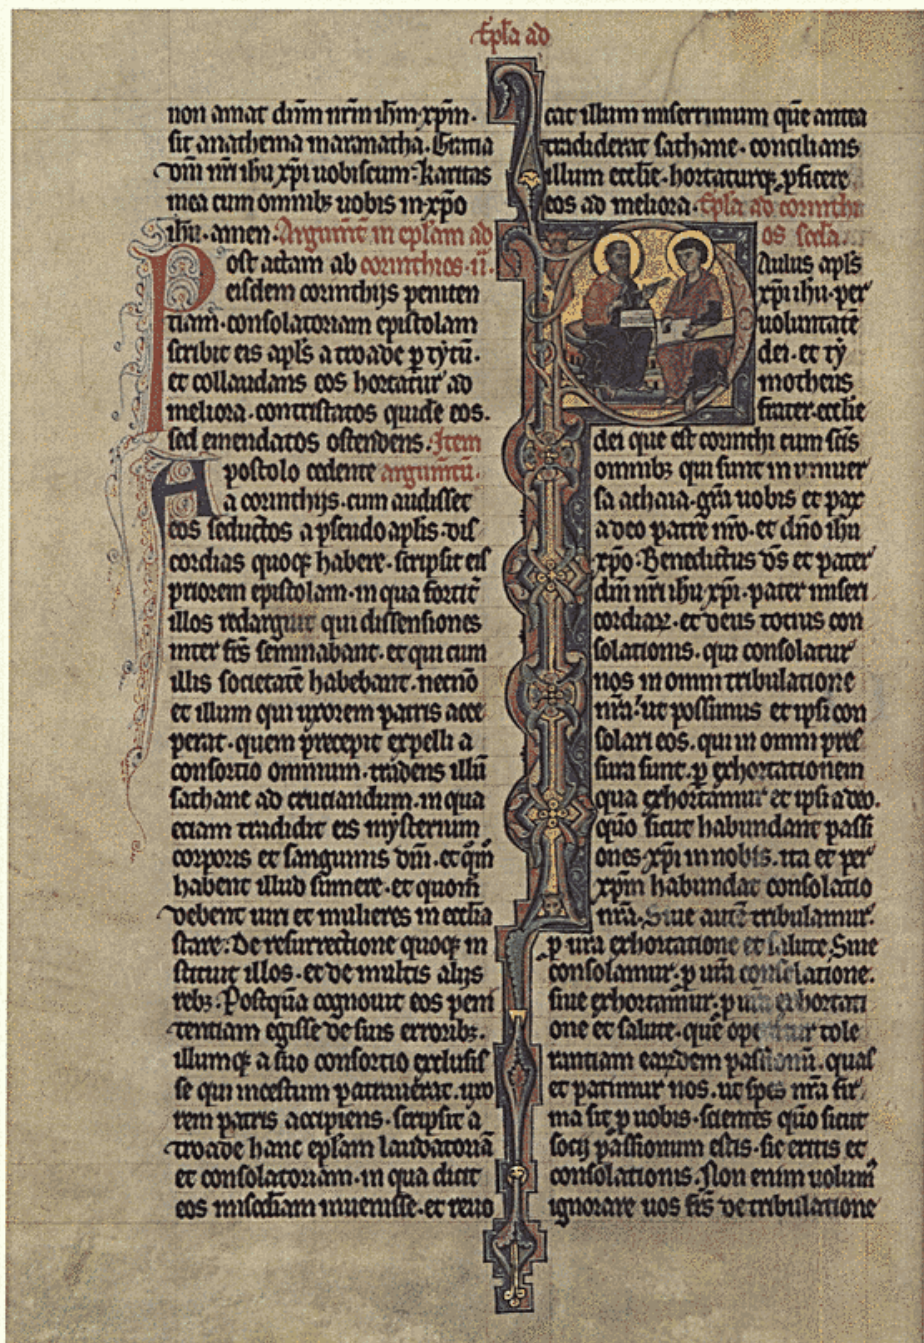 Epła ad
non amat dn̄m nr̄m ihm̄ xpm̄.
sit anathema maranatha. Gratia
dn̄i nr̄i ihu xp̄i uobiscum. karitas
mea cum omnibꝫ uobis in xp̄o
ihu. amen. Argum̄t in epłam ad
Post actam ab corinthios .ii.
eisdem corinthijs peniten
tiam. consolatoriam epistolam
scribit eis apłs a troade ꝑ tytū.
et collaudans eos hortatur ad
meliora. contristatos quidē eos.
sed emendatos ostendens. Item
Apostolo cedente argumtū.
a corinthijs. cum audisset
eos seductos a pseudo apłis. dis
cordias quoqꝫ habere. scripsit eis
priorem epistolam. in qua fortit̄
illos redarguit qui dissensiones
inter fr̄s seminabant. et qui cum
illis societatē habebant. necnō
et illum qui uxorem patris acce
perat. quem precepit expelli a
consortio omnium. tradens illū
sathane ad cruciandum. in qua
eciam tradidit eis mysterium
corporis et sanguinis dn̄i. et qm̄
habent illud sumere. et quom̄
debent uiri et mulieres in ecclia
stare. De resurrectione quoqꝫ in
stituit illos. et de multis alijs
rebꝫ. Postquā cognouit eos peni
tentiam egisse de suis erroribꝫ.
illumqꝫ a suo consortio exclusis
se qui incestum patrauerat. uxo
rem patris accipiens. scripsit a
troade hanc epłam laudatoriā
et consolatoriam. in qua dicit
eos misc̄diam inuenisse. et reuo
cat illum miserrimum quē antea
tradiderat sathane. concilians
illum ecclie. hortaturqꝫ ꝓficere
eos ad meliora. Epła ad corinthi
os scd̄a.
Aulus apłs
xp̄i ihu. per
uoluntatē
dei. et ty
motheus
frater. ecclie
dei que est corinthi cum sc̄is
omnibꝫ qui sunt in uniuer
sa achaia. gr̄a uobis et pax
a deo patre nr̄o. et dn̄o ihu
xp̄o. Benedictus ds̄ et pater
dn̄i nr̄i ihu xp̄i. pater miseri
cordiaꝝ. et deus totius con
solationis. qui consolatur
nos in omni tribulatione
nr̄a. ut possimus et ipsi con
solari eos. qui in omni pres
sura sunt. ꝑ exhortationem
qua exhortamur et ipsi a deo.
quō sicut habundant passi
ones xp̄i in nobis. ita et per
xpm̄ habundat consolatio
nr̄a. Siue autē tribulamur.
ꝑ ur̄a exhortatione et salute. Siue
consolamur. ꝑ ur̄a consolatione.
siue exhortamur. ꝑ ur̄a exhortati
one et salute. que operatur tole
rantiam earꝫdem passionū. quas
et patimur nos. ut spes nr̄a fir
ma sit ꝑ uobis. scientes quō sicut
socij passionum estis. sic eritis et
consolationis. Non enim uolum̄
ignorare uos fr̄s de tribulatione